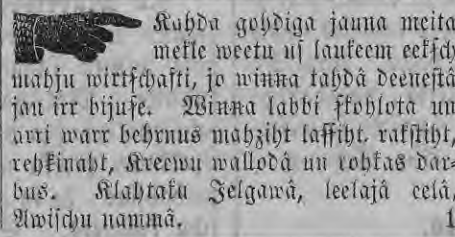 Kahda gohdiga jauna meita
mekle weetu uſ laukeem eekſch
mahju wirtſchafti, jo winna tahdâ deeneſtâ
jau irr bijuſe. Winna labbi ſkohlota un
arri warr behrnus mahziht laſſiht, rakſtiht,
rehkinaht, Kreewu wallodâ un rohkas dar-
bus. Klahtaku Jelgawâ, leelajâ eelâ,
Awiſchu nammâ. 1